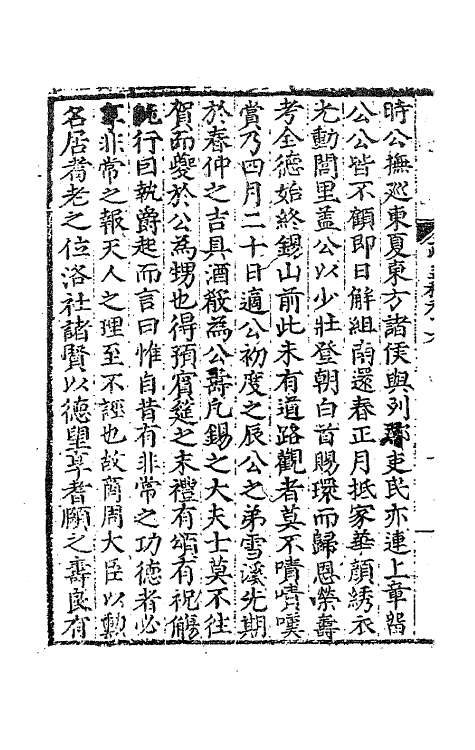 時公撫巡東夏東方諸侯與列郡吏民亦連上章留
公公皆不顧即日解組南還春正月抵家華顏綉衣
尤動閭里蓋公以少壯登朝白首賜環而歸恩榮壽
考全德始終錫山前此未有道路觀者莫不嘖嘖嘆
賞乃四月二十日適公初度之辰公之弟雪溪先期
於春仲之吉具酒殽為公壽凡錫之大夫士莫不往
賀而夔於公為甥也得預賓筵之末禮有頌有祝觴
行曰執爵起而言曰惟自昔有非常之功德者必
非常之報天人之理至不誣也故商周大臣以勳
名居耆老之位洛社諸賢以德望享耆願之壽良有